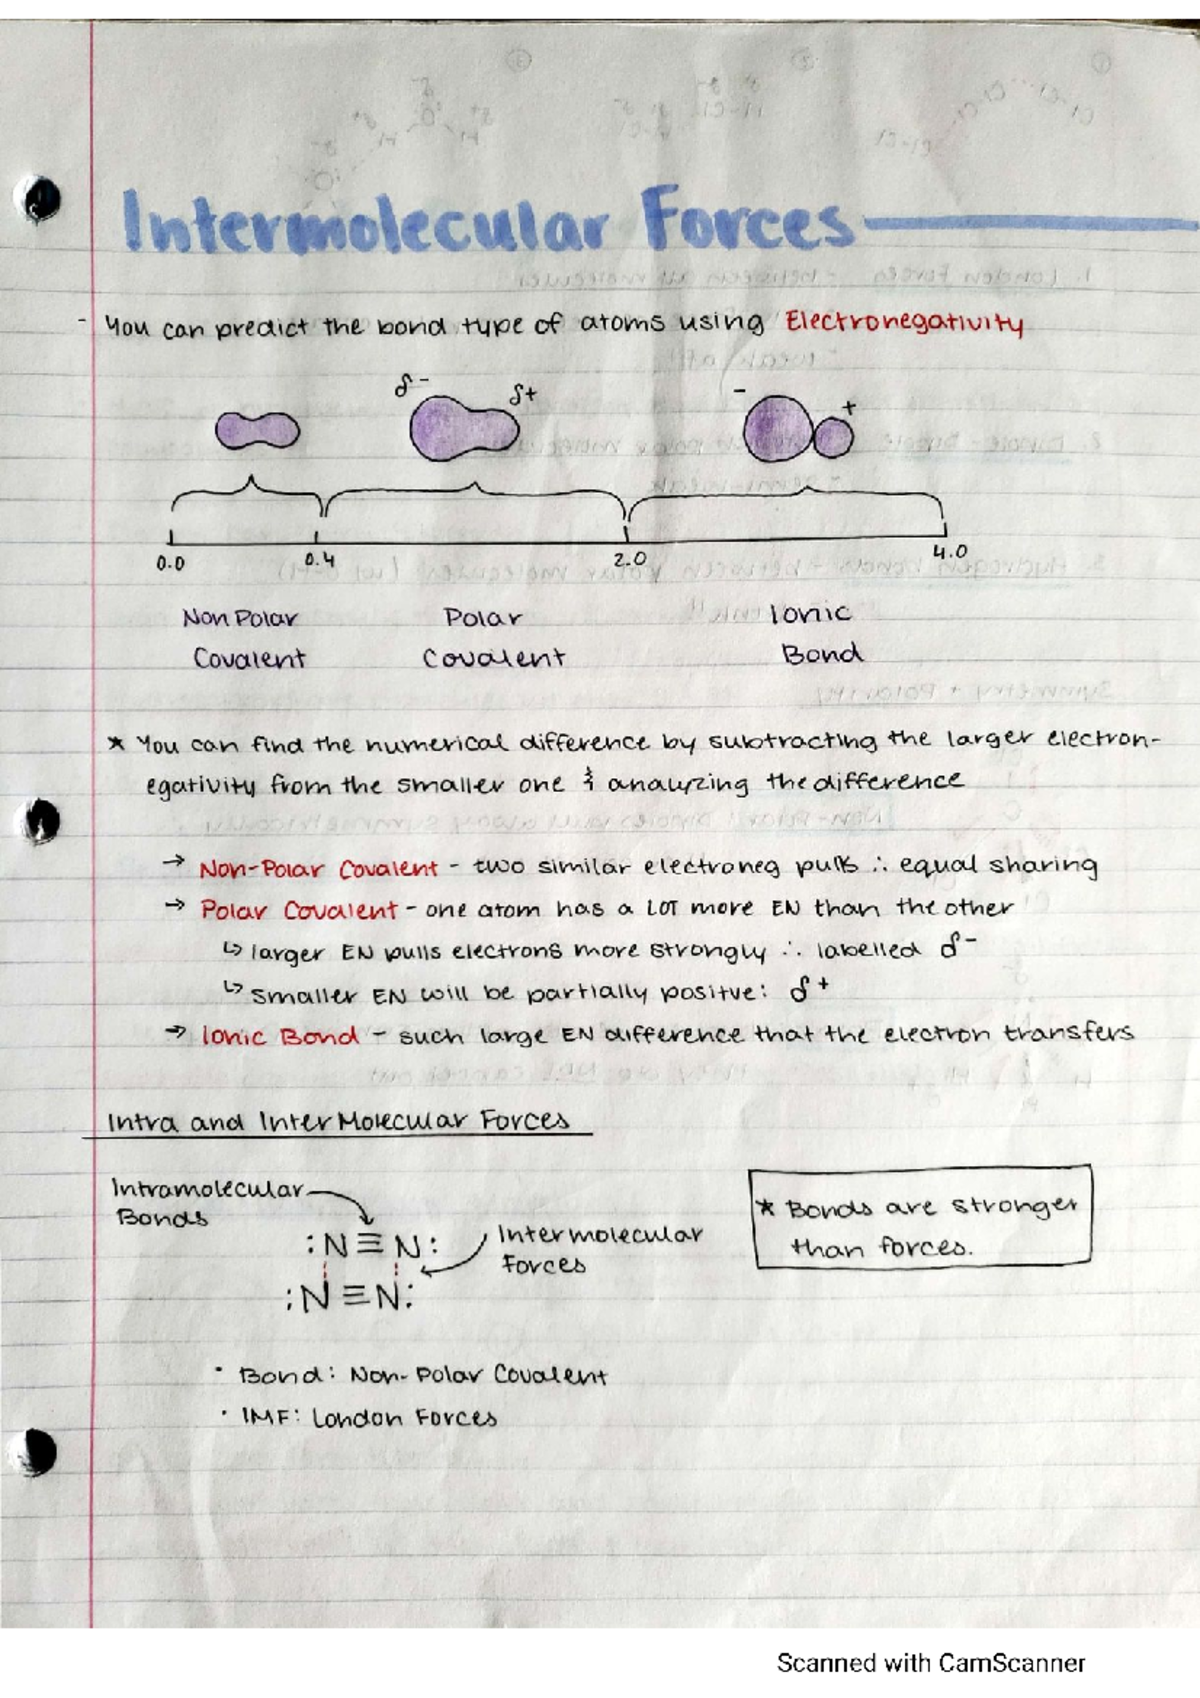 Intermolecular Forces
- You can predict the bond type of atoms using Electronegativity
δ- δ+ - +
0.0 0.4 2.0 4.0
Non Polar Polar Ionic
Covalent Covalent Bond
* You can find the numerical difference by subtracting the larger electron-
egativity from the smaller one & analyzing the difference
→ Non-Polar Covalent - two similar electroneg pulls ∴ equal sharing
→ Polar Covalent - one atom has a LOT more EN than the other
↳ larger EN pulls electrons more strongly ∴ labelled δ-
↳ smaller EN will be partially positve: δ+
→ Ionic Bond - such large EN difference that the electron transfers
Intra and InterMolecular Forces
Intramolecular
Bonds
:N≡N:
:N≡N:
Intermolecular
Forces
* Bonds are stronger
than forces.
· Bond: Non-Polar Covalent
· IMF: London Forces
Scanned with CamScanner